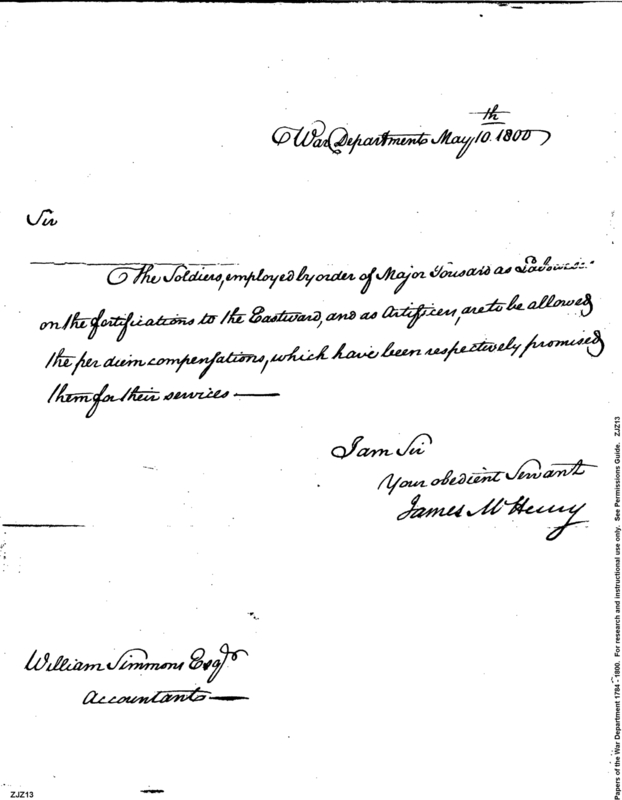 War Department May 10th 1800
Sir
The Soldiers, employed by order of Major Tousard as Labourers
on the fortifications to the Eastward, and as Artificers, are to be allowed
the per diem compensations, which have been respectively promised
them for their services —
I am Sir
Your obedient Servant
James McHenry
William Simmons Esqr
Accountant —
ZJZ13
Papers of the War Department 1784 - 1800. For research and instructional use only. See Permissions Guide. ZJZ13